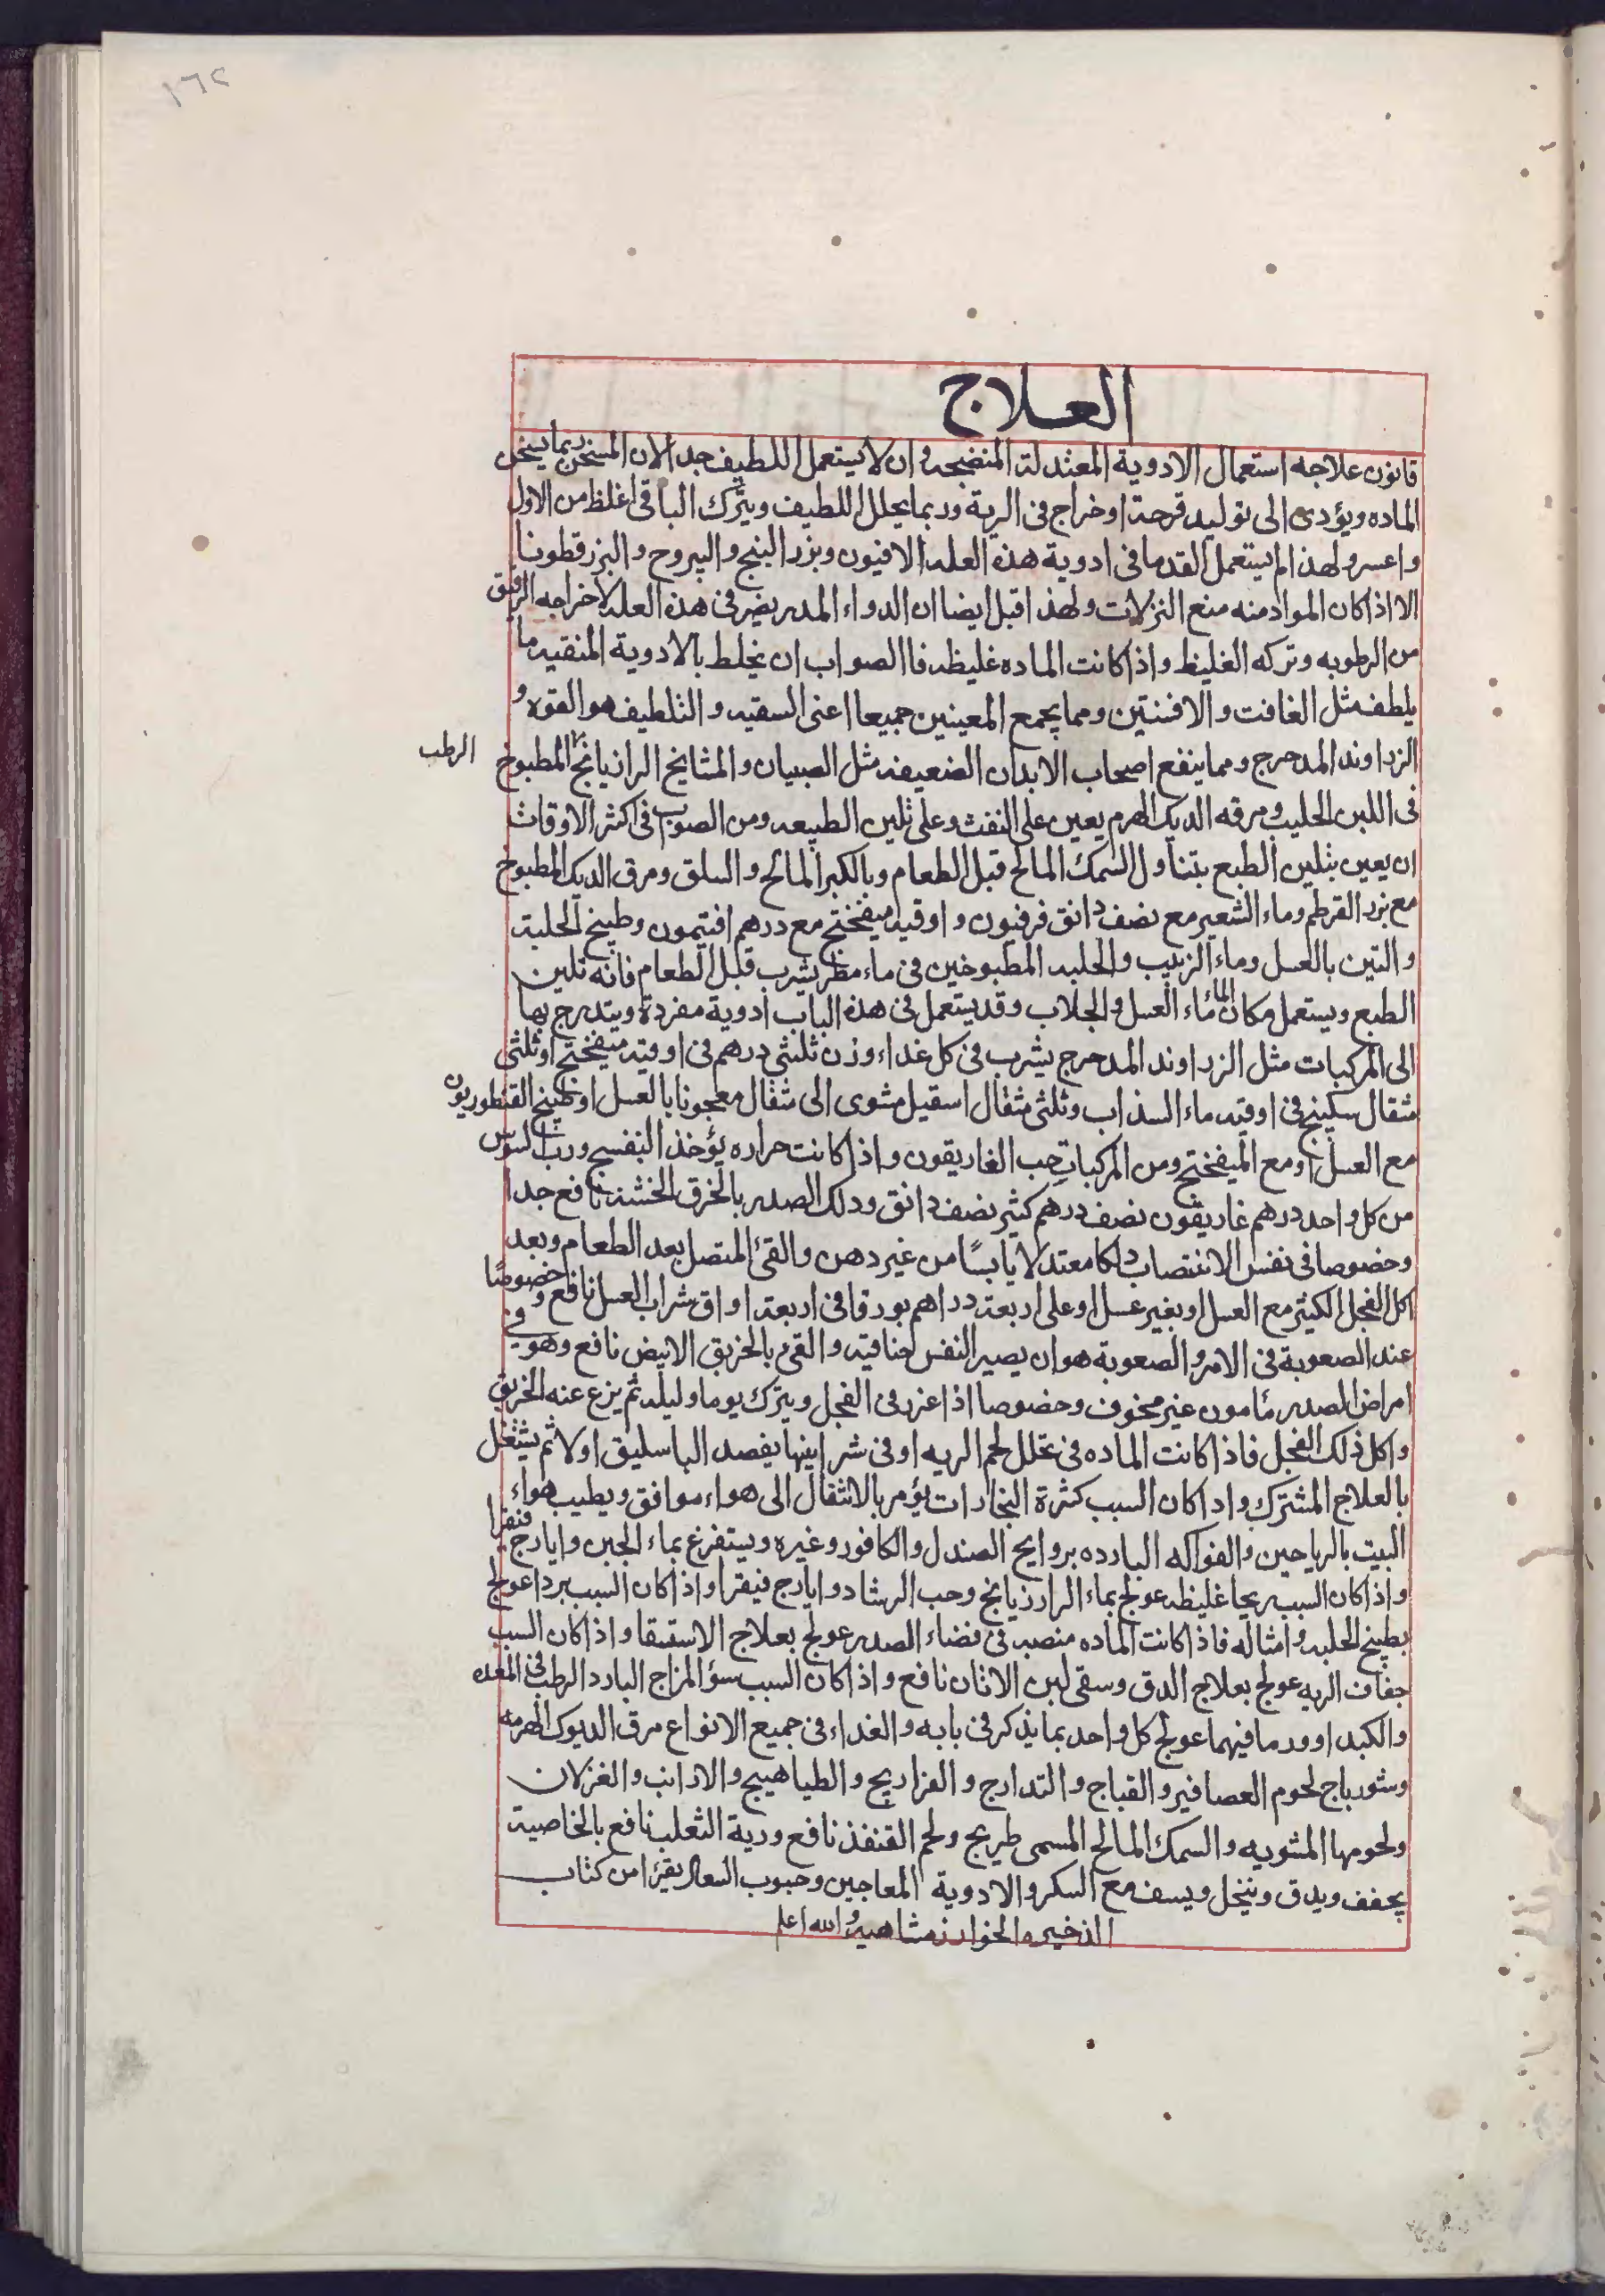 ١٦٢
العلاج
قانون علاجه استعمال الادوية المعتدلة المنضجه وان لا يستعمل اللطيف جدا لان المسخن ربما يسخن
الماده ويؤدى الى توليد قرحة او خراج فى الرية وربما يحلل اللطيف ويترك الباقى اغلظ من الاول
واعسر ولهذا لم يستعمل القدما فى ادوية هذه العله الافيون وبزر البنج واليبروح والبزرقطونا
الا اذا كان المواد منه منع النزلات ولهذا قيل ايضا ان الدواء المدر يضر فى هذه العله لاخراجه الرقيق
من الرطوبه وتركه الغليظ واذا كانت الماده غليظه فاالصواب ان يخلط بالادوية المنقيه ما
يلطف مثل الغافت والافسنتين ومما يجمع المعينين جميعا اعنى السقيه والتلطيف هو الفوه و
الزراوند المدحرج ومما ينفع اصحاب الابدان الضعيفه مثل الصبيان والمشايخ الرازيانج المطبوخ
الرطب
فى اللبن الحليب ومرقه الديك الهرم يعين على النفث وعلى تلين الطبيعه ومن الصواب فى اكثر الاوقات
ان يعين بتلين الطبع بتناول السمك المالح قبل الطعام وبالكبر المالح والسلق ومرق الديك المطبوخ
مع بزر القرطم وماء الشعير مع نصف دانق فرفيون واوقيه ميفختج مع درهم افتيمون وطبيخ الحلبة
والتين بالعسل وماء الزبيب والحلبه المطبوخين فى ماء مطر يشرب قبل الطعام فانه تلين
الطبع ويستعمل مكان الماء ماء العسل والجلاب وقد يستعمل فى هذه الباب ادوية مفردة ويتدرج بها
الى المركبات مثل الزراوند المدحرج يشرب فى كل غداء وزن ثلثى درهم فى اوقيه ميفختج او ثلثى
مثقال سكبينج فى اوقيه ماء السذاب وثلثى مثقال اسقيل مشوى الى مثقال معجونا بالعسل او طبيخ القنطوريون
مع العسل او مع الميفختج ومن المركبات حب الغاريقون واذا كانت حراره يؤخذ البنفسج ورب السوس
من كل واحد درهم غاريقون نصف درهم كثير نصف دانق ودلك الصدر بالخرق الخشنه نافع جدا
وخصوصا فى نفس الانتصاب دلكا معتدلا يابسًا من غير دهن والقئ المتصل بعد الطعام وبعد
اكل الفجل الكثير مع العسل او بغير عسل او على اربعة دراهم بورقا فى اربعة اواق شراب العسل نافع وخصوصًا
عند الصعوبة فى الامر والصعوبة هو ان يصير النفس خناقيه والقئ بالخربق الابيض نافع وهو فى
امراض الصدر مأمون غير مخوف وخصوصا اذا غرز فى الفجل ويترك يوما وليله ثم ينزع عنه الخربق
واكل ذلك الفجل فاذا كانت الماده فى تخلل لحم الريه او فى شرايينها يفصد الباسليق اولا ثم يشتغل
بالعلاج المشترك واذا كان السبب كثرة البخارات يؤمر بالانتقال الى هواء موافق ويطيب هواء
البيت بالرياحين والفواكه البارده بروايح الصندل والكافور وغيره ويستفرغ بماء الجبن وايارج فيقرا
واذا كان السبب ريحا غليظه عولج بماء الرازيانج وحب الرشاد وايارج فيقرا واذا كان السبب بردا عولج
بطبيخ الحلبه وامثاله فاذا كانت الماده منصبه فى فضاء الصدر عولج بعلاج الاستسقا واذا كان السبب
جفاف الريه عولج بعلاج الدق وسقى لبن الاتان نافع واذا كان السبب سؤ المزاج البارد الرطب فى المعده
والكبد او ورما فيهما عولج كل واحد بما يذكر فى بابه والغداء فى جميع الانواع مرق الديوك الهرمه
وشورباج لحوم العصافير والقباج والتدارج والفراريج والطياهيج والارانب والغزلان
ولحومها المشويه والسمك المالح المسمى طريح ولحم القنفذ نافع ورية الثعلب نافع بالخاصية
يجفف ويدق وينخل ويسف مع السكر والادوية المعاجين وحبوب السعال يقرا من كتاب
الذخيره الخوارزمشاهيه والله اعلم